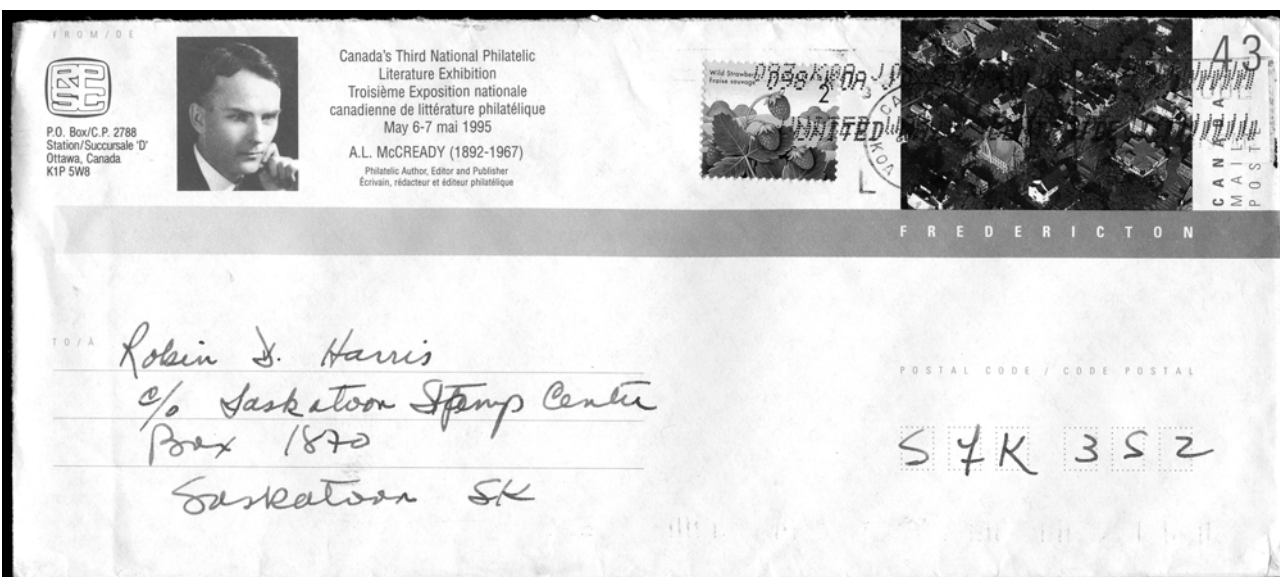 FROM/DE
P.O. Box/C.P. 2788
Station/Succursale 'D'
Ottawa, Canada
K1P 5W8
Canada's Third National Philatelic
Literature Exhibition
Troisième Exposition nationale
canadienne de littérature philatélique
May 6-7 mai 1995
A.L. McCREADY (1892-1967)
Philatelic Author, Editor and Publisher
Écrivain, rédacteur et éditeur philatélique
Wild Strawberry
Fraise sauvage
2
43
CANADA
MAIL
POSTE
UNITED
FREDERICTON
TO/À
Robin D. Harris
c/o Saskatoon Stamp Centre
Box 1870
Saskatoon SK
POSTAL CODE / CODE POSTAL
S7K 3S2